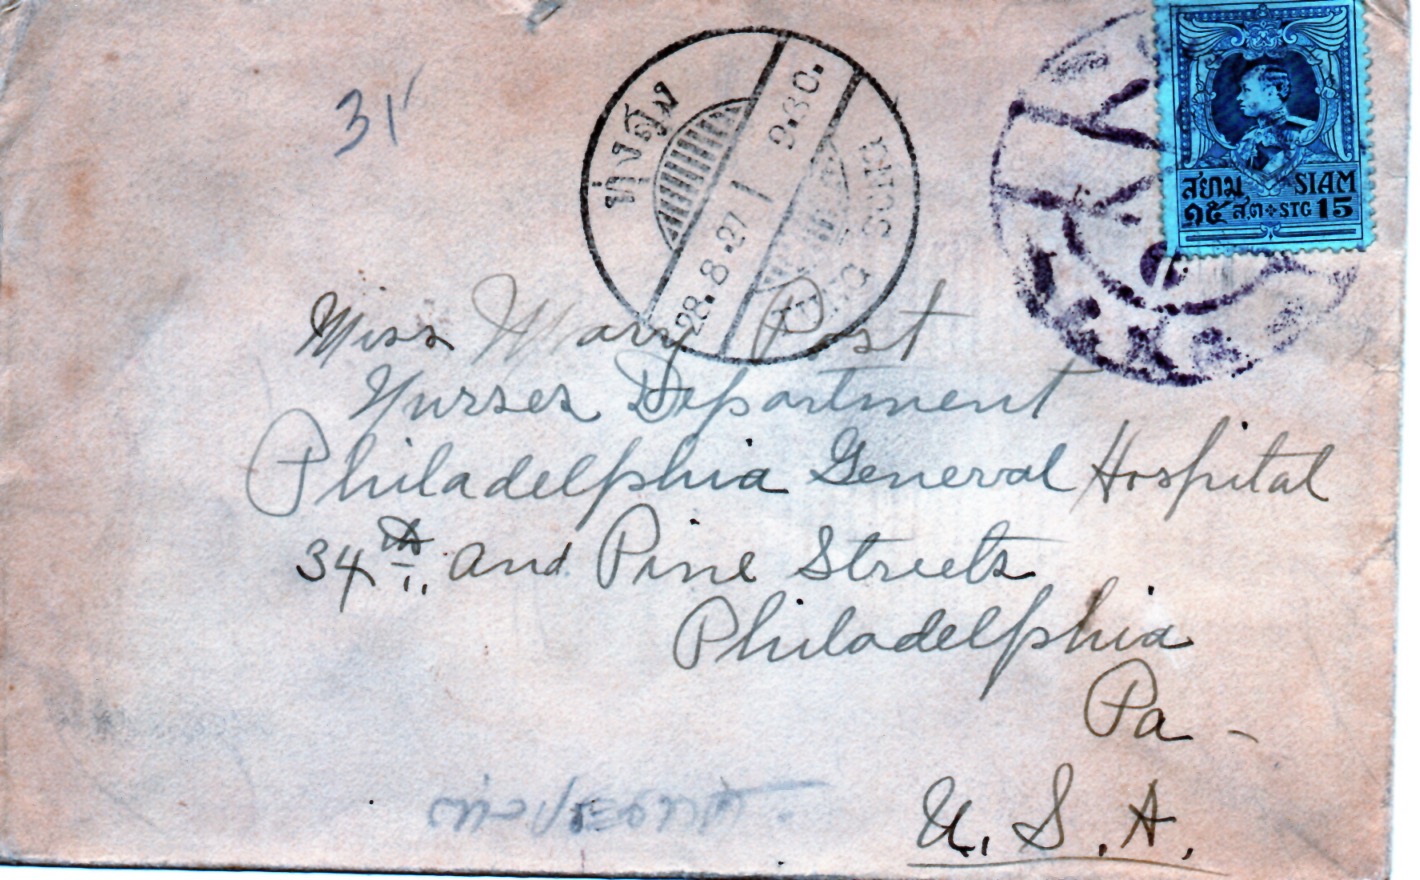 31
ทุ่งสง
9.30.
28.8.27
TUNG SONG
สยาม SIAM
๑๕ สต STG 15
Miss Mary Post
Nurses Department
Philadelphia General Hospital
34th and Pine Streets
Philadelphia
Pa -
U. S. A.
ต่างประเทศ